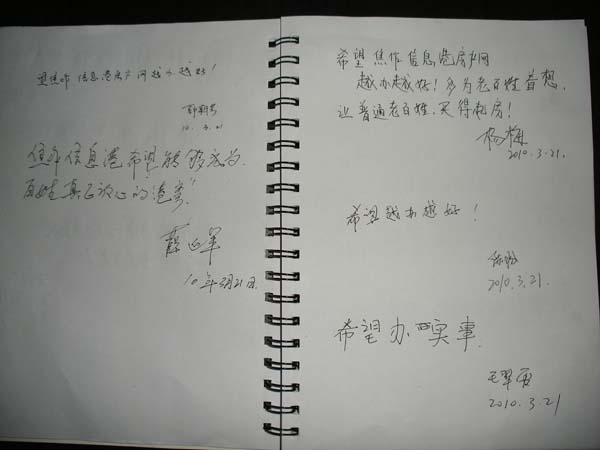 望焦作信息港房产网越办越好！
10.3.21
焦作信息港希望能够成为
百姓真正放心的港湾！
10年3月21日
希望焦作信息港房产网
越办越好！多为老百姓着想，
让普通老百姓，买得起房！
杨梅
2010.3.21.
希望越办越好！
2010.3.21.
希望办实事.
2010.3.21